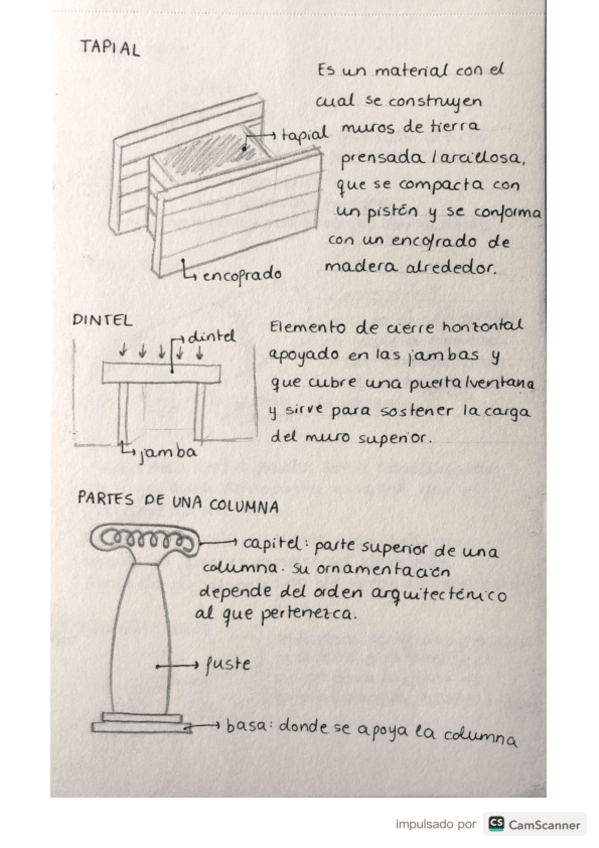 TAPIAL
Es un material con el
cual se construyen
muros de tierra
prensada/arcillosa,
que se compacta con
un pistón y se conforma
con un encofrado de
madera alrededor.
tapial
encofrado
DINTEL
dintel
jamba
Elemento de cierre horizontal
apoyado en las jambas y
que cubre una puerta/ventana
y sirve para sostener la carga
del muro superior.
PARTES DE UNA COLUMNA
capitel: parte superior de una
columna. su ornamentación
depende del orden arquitectónico
al que pertenezca.
fuste
basa: donde se apoya la columna
impulsado por CS CamScanner